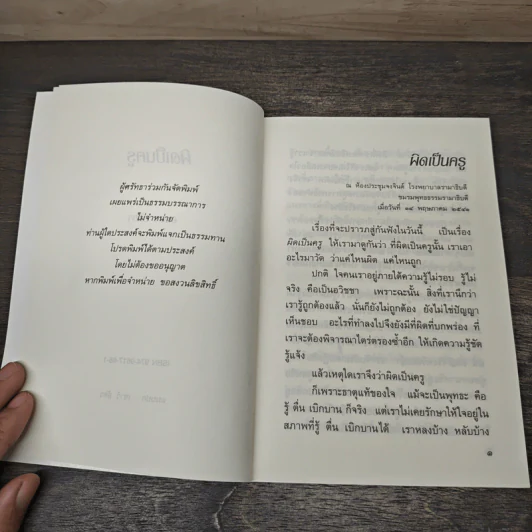 ผู้ศรัทธาร่วมกันจัดพิมพ์
เผยแพร่เป็นธรรมบรรณาการ
ไม่จำหน่าย
ท่านผู้ใดประสงค์จะพิมพ์แจกเป็นธรรมทาน
โปรดพิมพ์ได้ตามประสงค์
โดยไม่ต้องขออนุญาต
หากพิมพ์เพื่อจำหน่าย ขอสงวนลิขสิทธิ์
ผิดเป็นครู
ณ ห้องประชุมจงจินต์ โรงพยาบาลรามาธิบดี
ชมรมพุทธธรรมรามาธิบดี
เมื่อวันที่ ๑๔ พฤษภาคม
เรื่องที่จะปรารภสู่กันฟังในวันนี้ เป็นเรื่อง
ผิดเป็นครู ให้เรามาดูกันว่า ที่ผิดเป็นครูนั้น เราเอา
อะไรมาวัด ว่าแค่ไหนผิด แค่ไหนถูก
ปกติ ใจคนเราอยู่ภายใต้ความรู้ไม่รอบ รู้ไม่
จริง คือเป็นอวิชชา เพราะฉะนั้น สิ่งที่เรานึกว่า
เรารู้ถูกต้องแล้ว นั่นก็ยังไม่ถูกต้อง ยังไม่ใช่ปัญญา
เห็นชอบ อะไรที่ทำลงไปจึงยังมีที่ผิดที่บกพร่อง ที่
เราจะต้องพิจารณาไตร่ตรองซ้ำอีก ให้เกิดความรู้ชัด
รู้แจ้ง
แล้วเหตุใดเราจึงว่าผิดเป็นครู
ก็เพราะธาตุแท้ของใจ แม้จะเป็นพุทธะ คือ
รู้ ตื่น เบิกบาน ก็จริง แต่เราไม่เคยรักษาให้ใจอยู่ใน
สภาพที่รู้ ตื่น เบิกบานได้ เราหลงบ้าง หลับบ้าง
๑